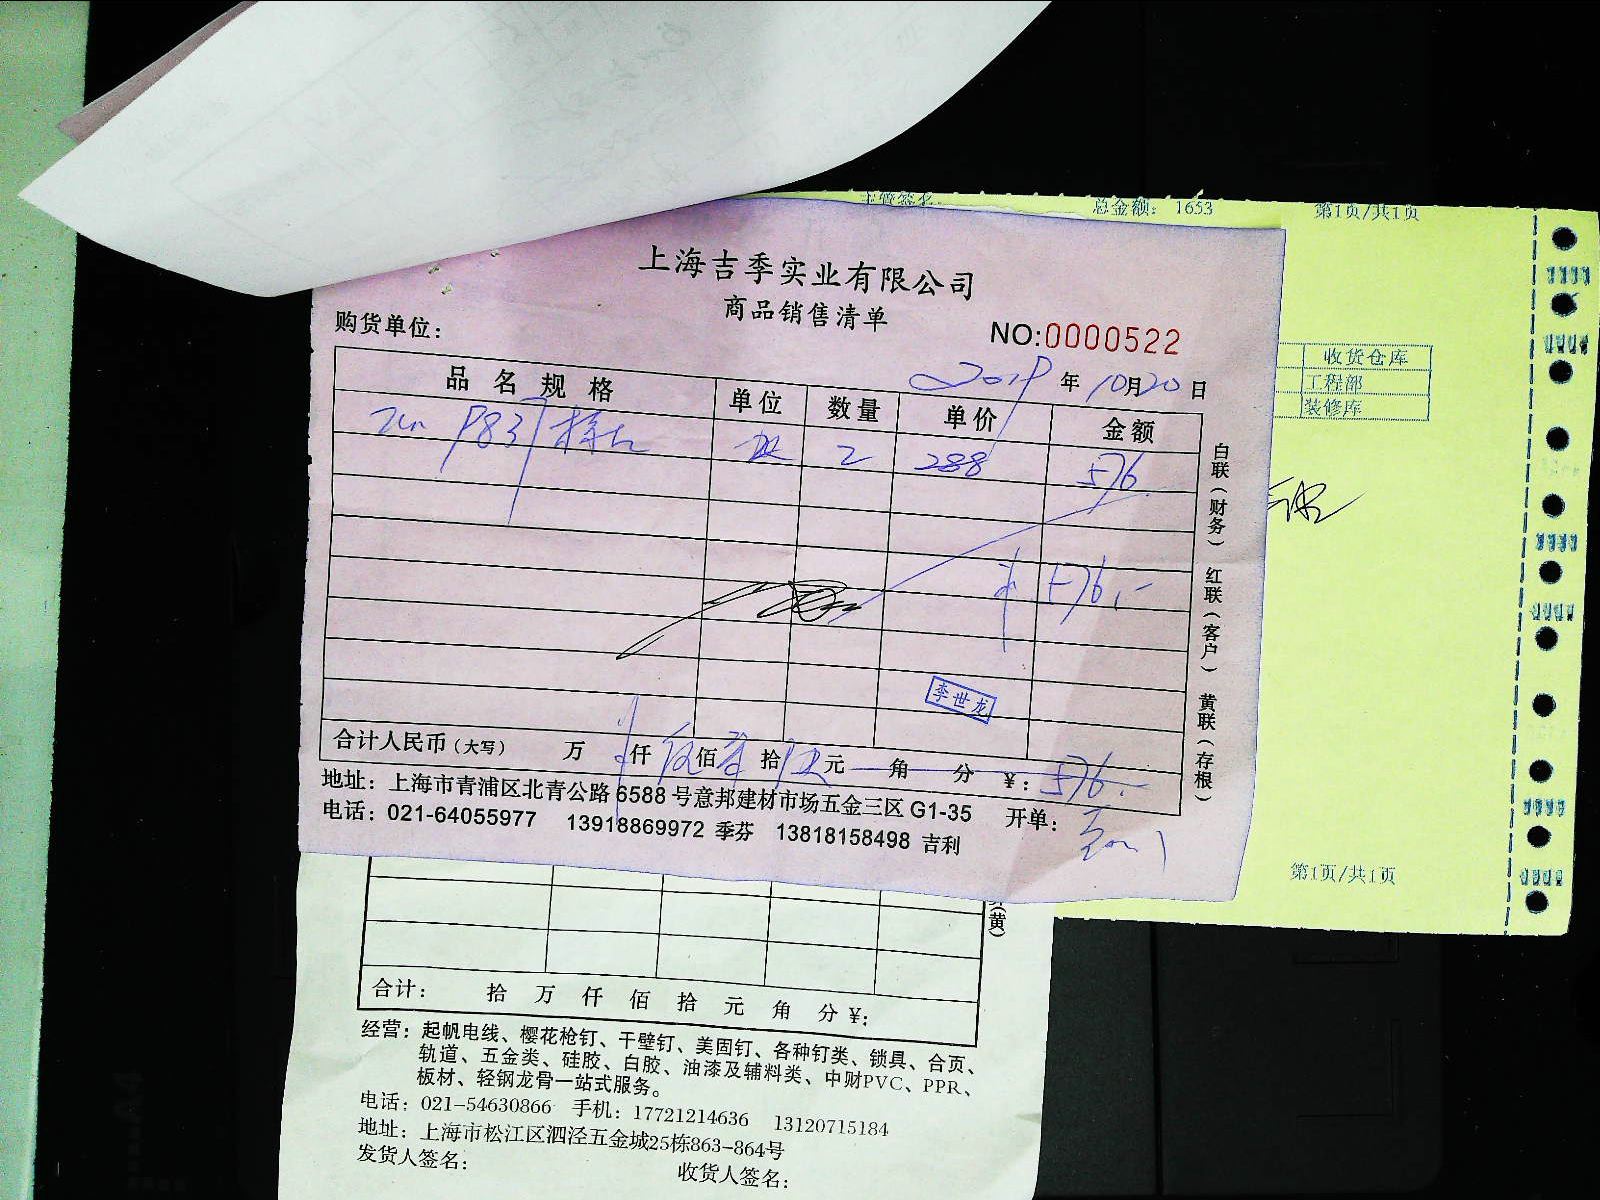 总金额： 1653
第1页/共1页
上海吉季实业有限公司
商品销售清单
购货单位：
NO:0000522
2019 年 10月20日
品名规格 单位 数量 单价 金额
2 288 576
576.-
李世龙
合计人民币（大写） 万 仟 伍佰 拾 元 角 分 ￥: 576.-
地址：上海市青浦区北青公路 6588 号意邦建材市场五金三区 G1-35
开单：
电话：021-64055977 13918869972 季芬 13818158498 吉利
白联（财务） 红联（客户） 黄联（存根）
收货仓库
工程部
装修库
第1页/共1页
(黄)
合计： 拾 万 仟 佰 拾 元 角 分 ￥:
经营：起帆电线、樱花枪钉、干壁钉、美固钉、各种钉类、锁具、合页、
轨道、五金类、硅胶、白胶、油漆及辅料类、中财PVC、PPR、
板材、轻钢龙骨一站式服务。
电话：021-54630866 手机：17721214636 13120715184
地址：上海市松江区泗泾五金城25栋863-864号
发货人签名：
收货人签名：